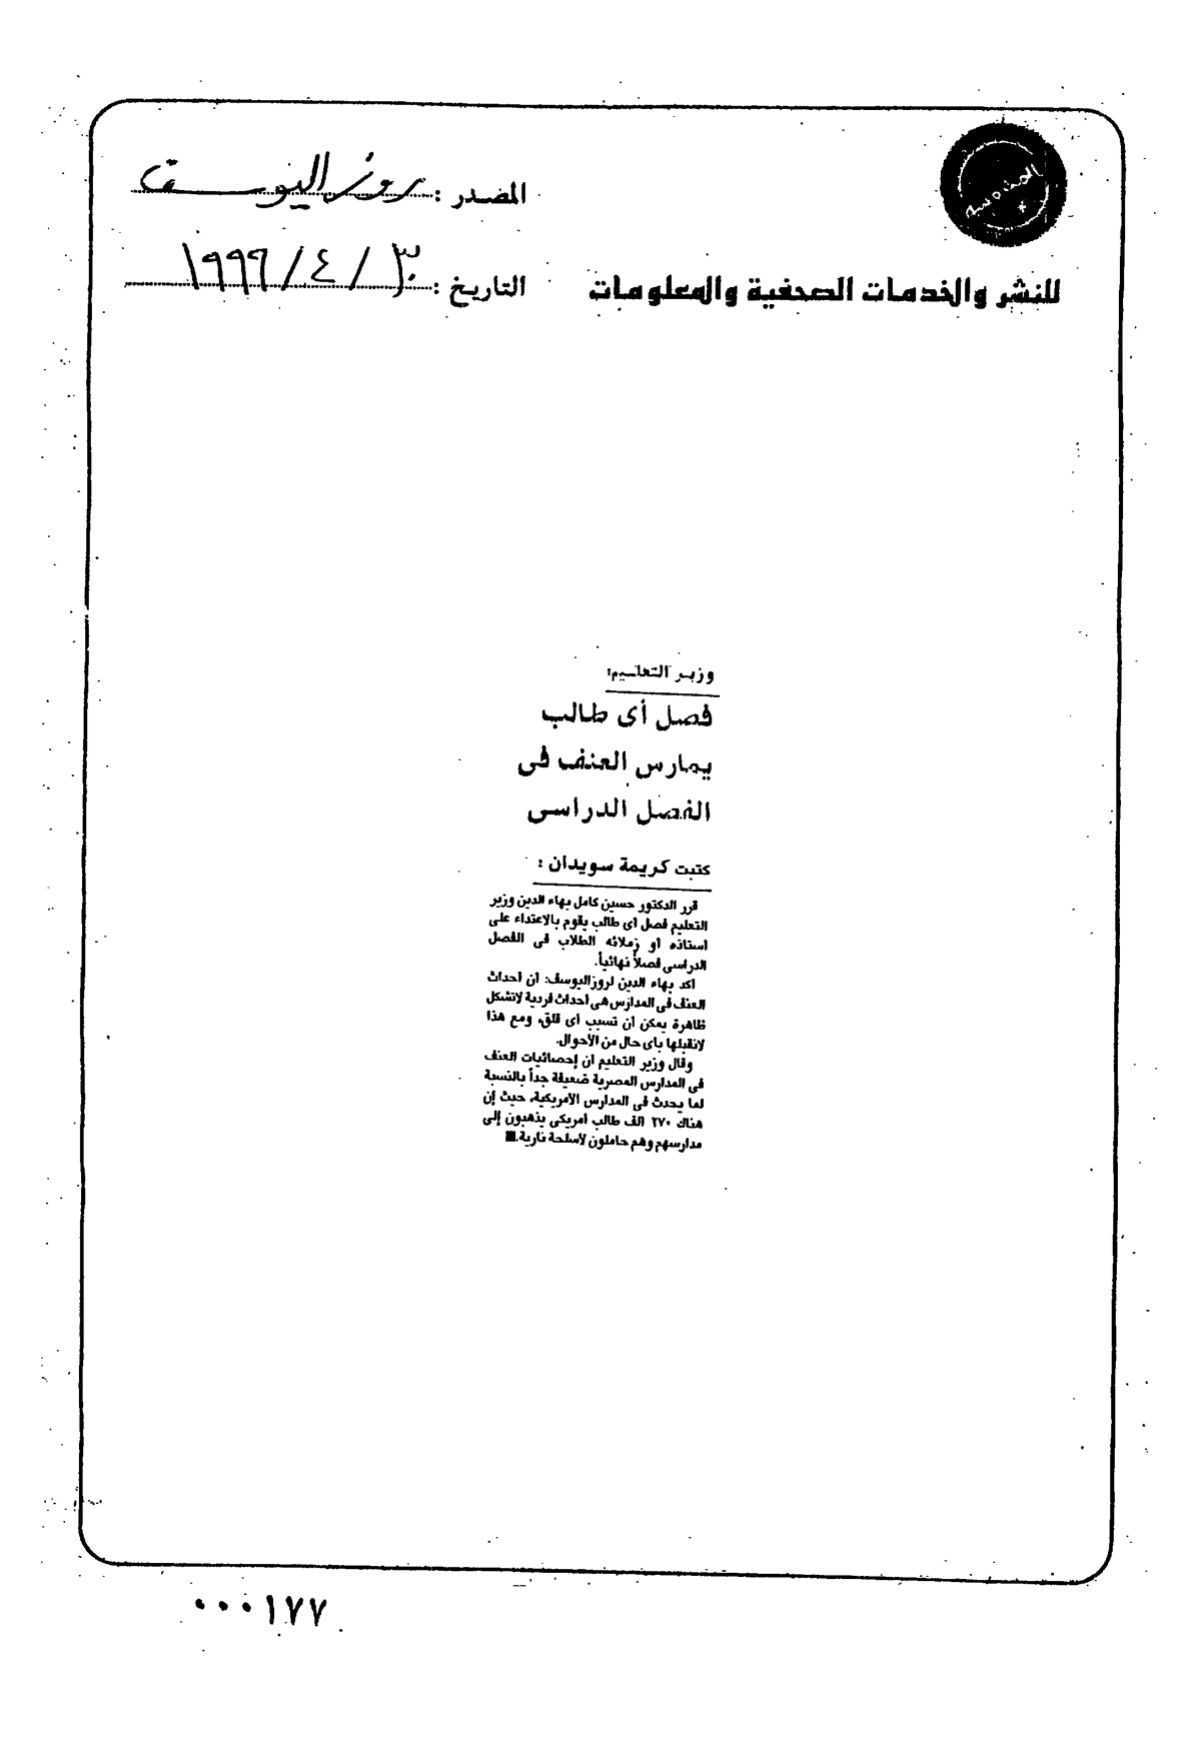 المصدر : روز اليوسف
للنشر والخدمات الصحفية والمعلومات
التاريخ : ٣٠ / ٤ / ١٩٩٩
وزير التعليم:
فصل أى طالب
يمارس العنف فى
الفصل الدراسى
كتبت كريمة سويدان :
قرر الدكتور حسين كامل بهاء الدين وزير
التعليم فصل أى طالب يقوم بالاعتداء على
أستاذه أو زملائه الطلاب فى الفصل
الدراسى فصلاً نهائياً.
أكد بهاء الدين لروزاليوسف: أن أحداث
العنف فى المدارس هى أحداث فردية لاتشكل
ظاهرة يمكن أن تسبب أى قلق، ومع هذا
لانقبلها بأى حال من الأحوال.
وقال وزير التعليم أن إحصائيات العنف
فى المدارس المصرية ضعيفة جداً بالنسبة
لما يحدث فى المدارس الأمريكية، حيث إن
هناك ٢٧٠ ألف طالب أمريكى يذهبون إلى
مدارسهم وهم حاملون لأسلحة نارية.■
٠٠٠١٧٧